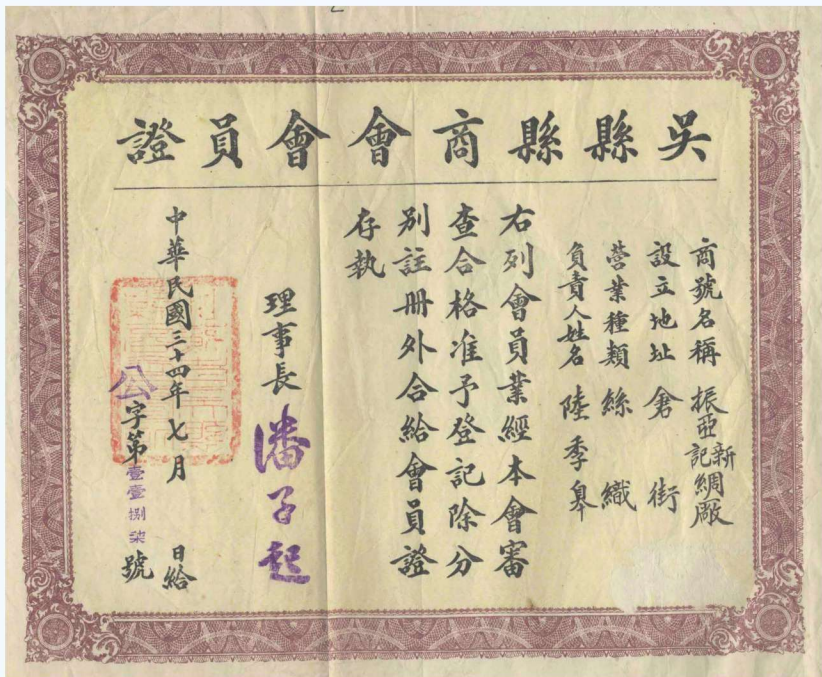 吳縣縣商會會員證
商號名稱 振亞新記綢廠
設立地址 倉街
營業種類 絲織
負責人姓名 陸季皋
右列會員業經本會審
查合格准予登記除分
別註冊外合給會員證
存執
理事長 潘子起
中華民國三十四年七月 日給
公字第壹壹捌柒號